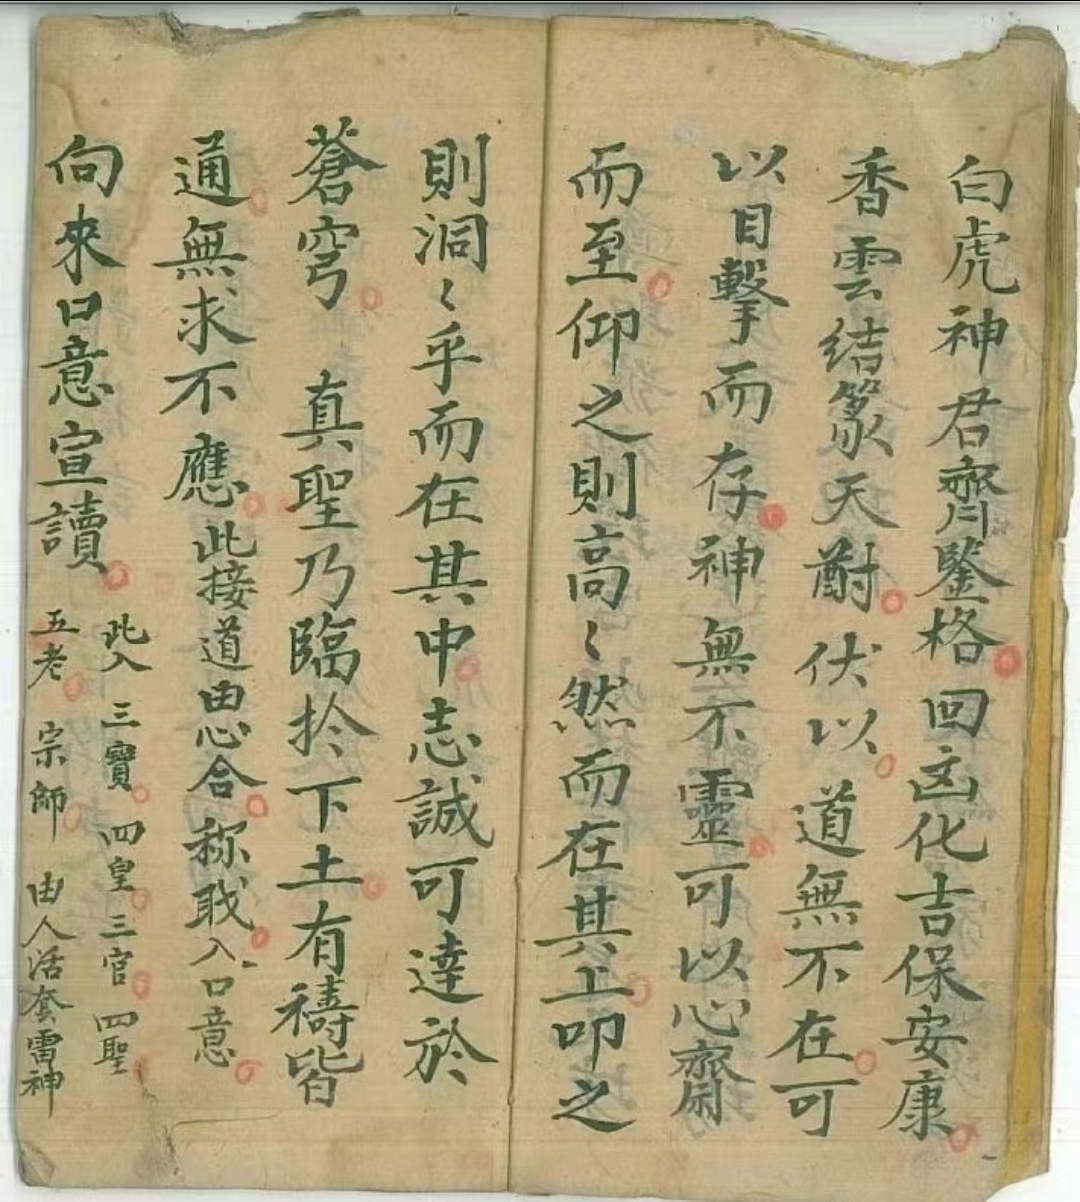 白虎神君齊川鑒格回凶化吉保安康
香雲结篆天酧伏以道無不在可
以目擊而存神無不靈可以心齋
而至仰之則高〻然而在其上叩之
則洞〻乎而在其中志誠可達於
蒼穹真聖乃臨於下土有禱皆
通無求不應此接道由思合称戝入口意
向來口意宣讀此入三寶四皇三官四聖
五老宗師由人活套雷神